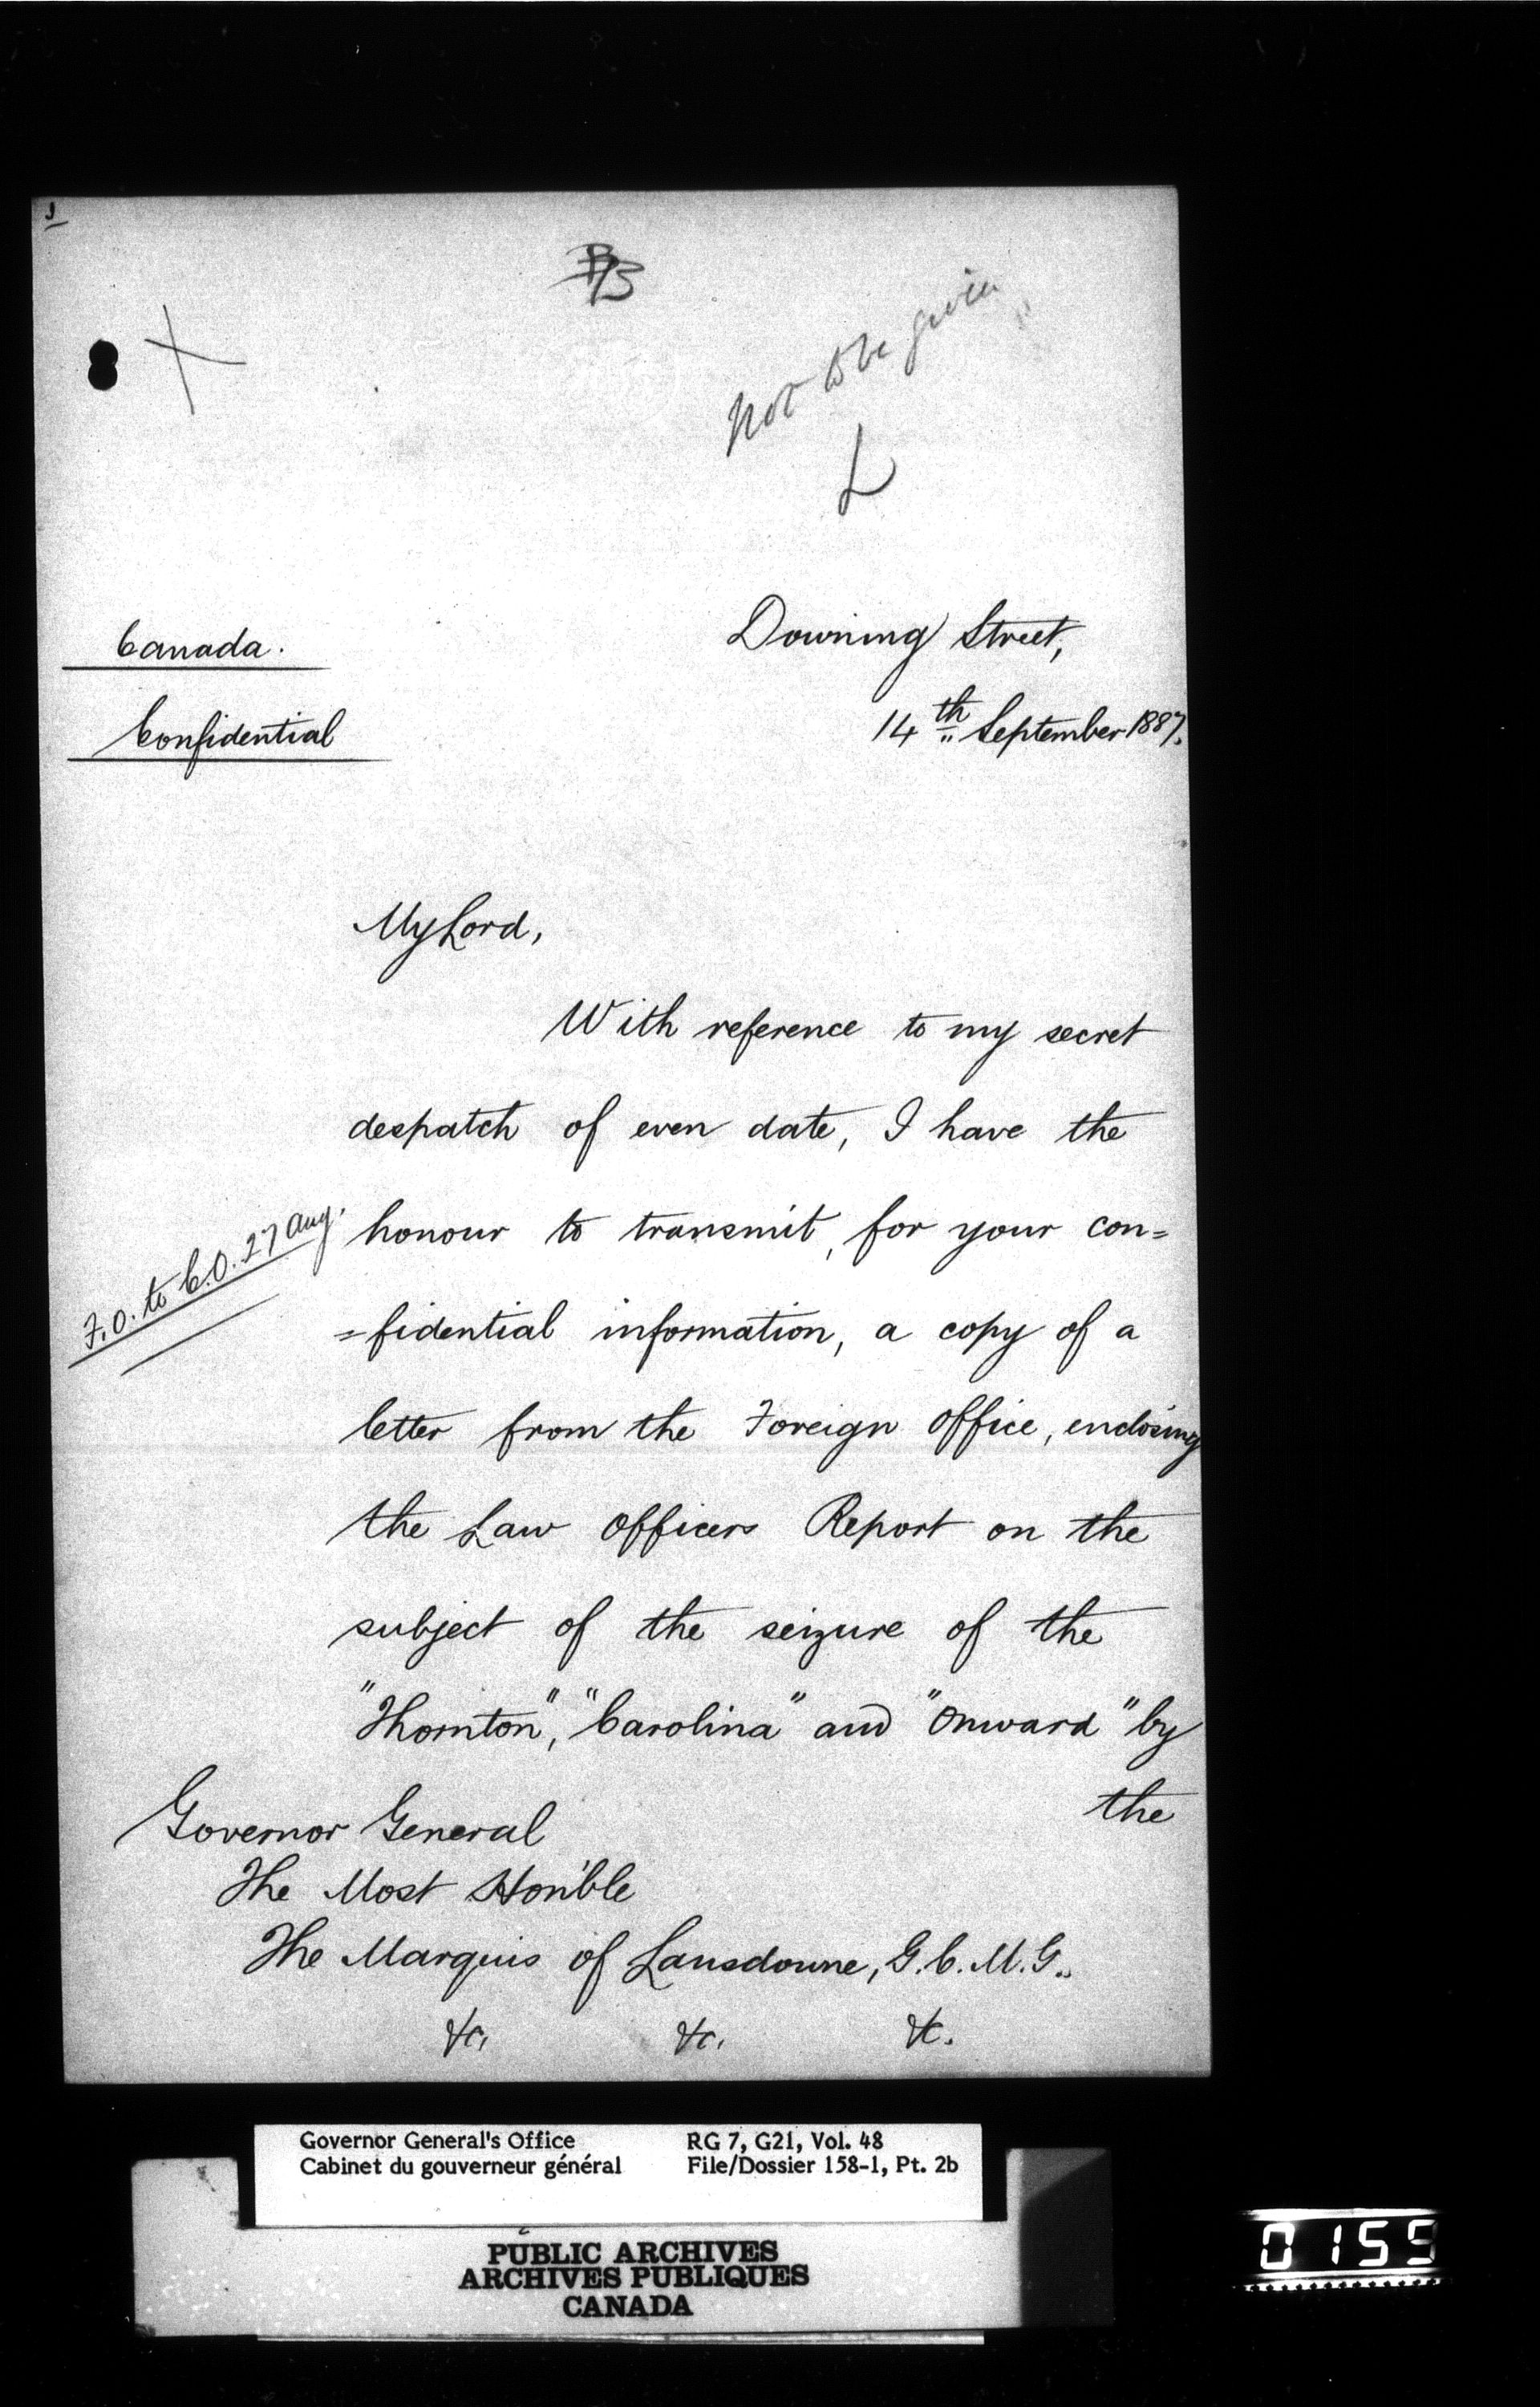 Not to be given
L
Canada.
Downing Street,
Confidential
14th September 1887.
My Lord,
With reference to my secret
despatch of even date, I have the
F.O. to C.O. 27 Aug.
honour to transmit, for your con=
=fidential information, a copy of a
letter from the Foreign Office, enclosing
the Law Officers Report on the
subject of the seizure of the
"Thornton", "Carolina" and "Onward" by
the
Governor General
The Most Hon'ble
The Marquis of Lansdowne, G.C.M.G.
&c. &c. &c.
Governor General's Office RG 7, G21, Vol. 48
Cabinet du gouverneur général File/Dossier 158-1, Pt. 2b
PUBLIC ARCHIVES
ARCHIVES PUBLIQUES
CANADA
0155